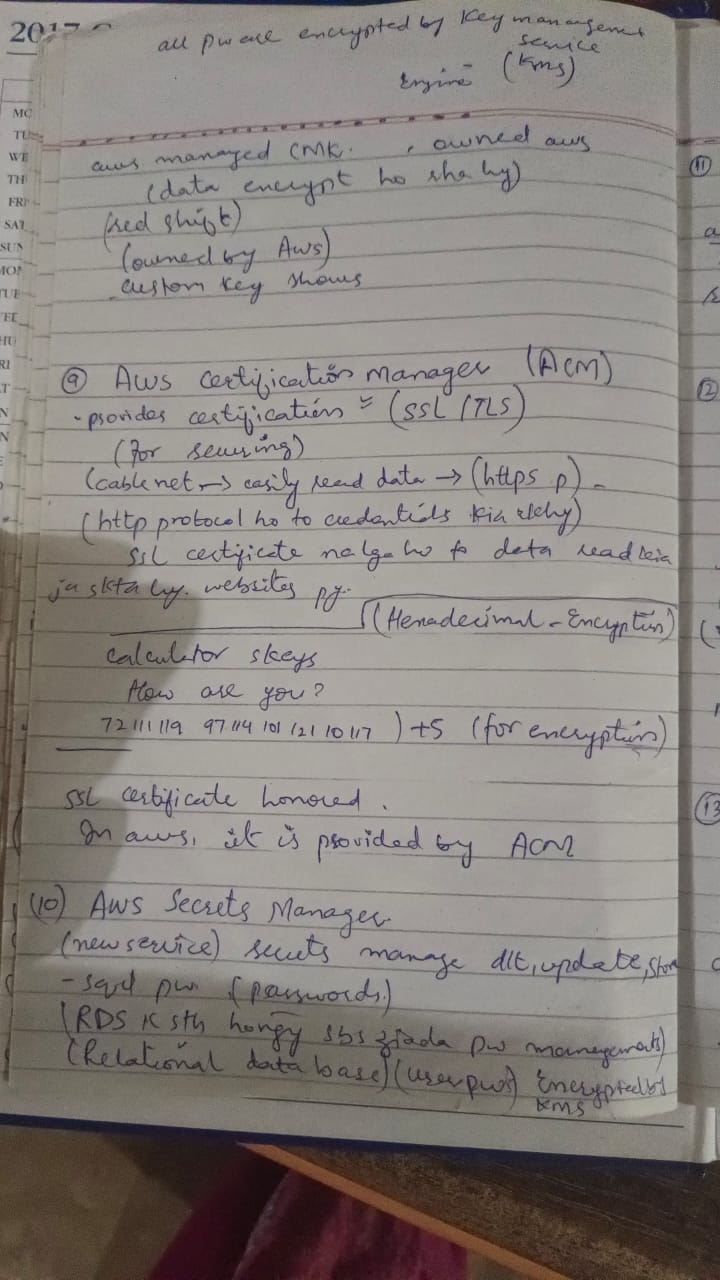 2017
all pw are encrypted by Key management
service
Engine (KMS)
MO
TU
WE
TH
FRI
SAT
SUN
MON
TUE
aws managed CMK. , owned aws
(data encrypt ho rha hy)
(red shift)
(owned by Aws)
custom key shows
⑨ Aws certification manager (ACM)
- provides certification = (SSL/TLS)
(For securing)
(cable net → easily read data → (https p) -
(http protocol ho to credentials kia
SSL certificate na lga ho to data read kia
ja skta hy. websites py.
(Hexadecimal - Encryption)
calculator skeys
How are you?
72 111 119 97 114 101 121 10 117 ) +5 (for encryption)
SSL certificate honored.
In aws, it is provided by ACM
(10) AWS Secrets Manager.
(new service) secrets manage dlt, update, store
- sqd pw (passwords.)
(RDS K sth hongy sbs ziada pw managements)
(Relational data base) (user pws) Encrypted by
KMS
⑪
⑫
⑬